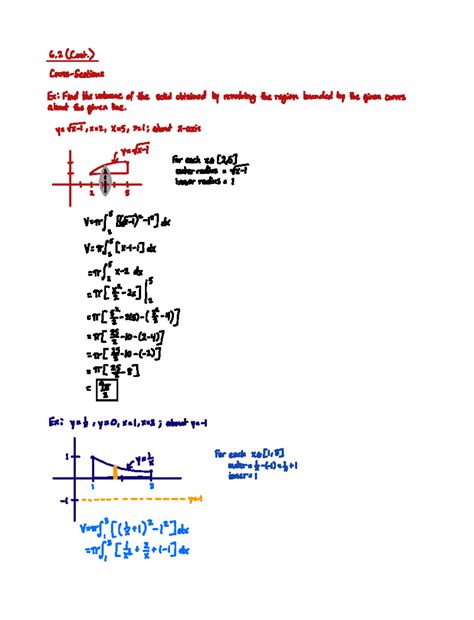 6.2 (Cont.)
Cross-Sections
Ex: Find the volume of the solid obtained by revolving the region bounded by the given curves
about the given line.
y=√x-1, x=2, x=5, y=1; about x-axis
y=√x-1
For each x∈[2,5]
outer radius = √x-1
inner radius = 1
2 5
V=π∫₂⁵[(√x-1)²-1²]dx
V=π∫₂⁵[x-1-1]dx
=π∫₂⁵ x-2 dx
=π[x²/2-2x]|₂⁵
=π[5²/2-2(5)-(2²/2-4)]
=π[25/2-10-(2-4)]
=π[25/2-10-(-2)]
=π[25/2-8]
=9π/2
Ex: y=1/x, y=0, x=1, x=3; about y=-1
y=1/x
For each x∈[1,3]
outer=1/x-(-1)=1/x+1
inner=1
1
1 3
-1
y=-1
V=π∫₁³[(1/x+1)²-1²]dx
=π∫₁³[1/x²+2/x+1-1]dx